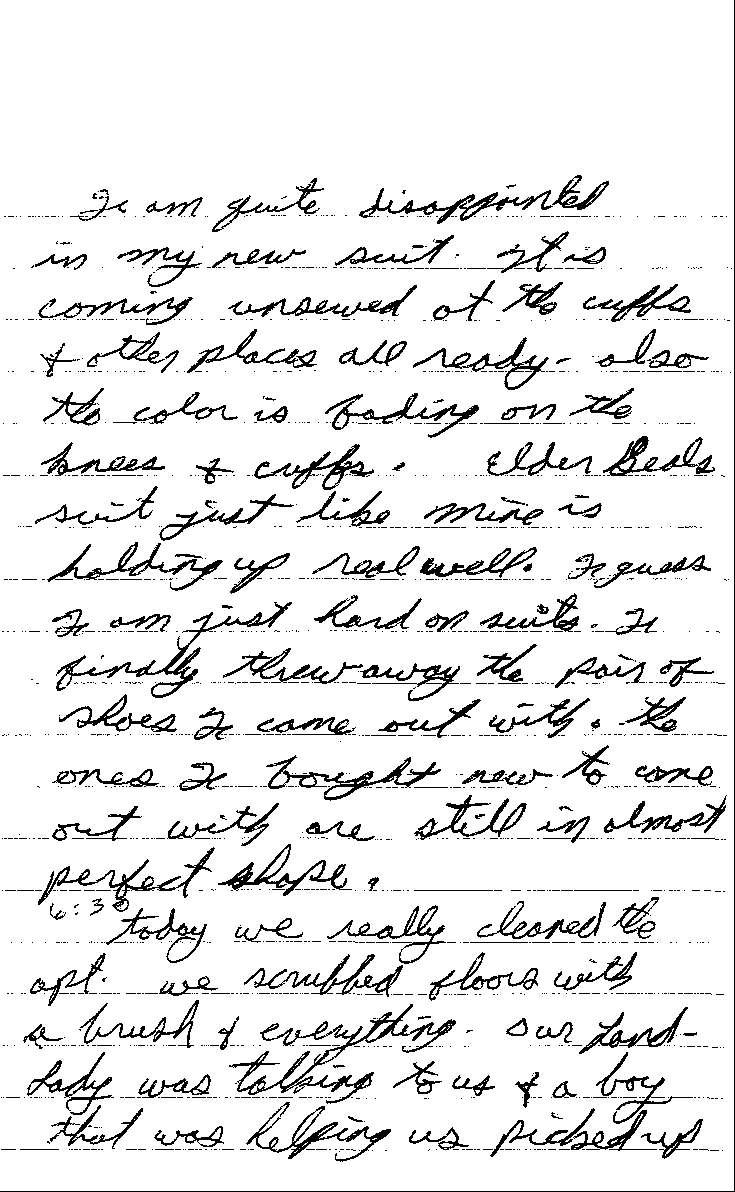 I am quite disappointed
in my new suit. It is
coming unsewed at the cuffs
& other places all ready - also
the color is fading on the
knees & cuffs. Elder Beals
suit just like mine is
holding up real well. I guess
I am just hard on suits. I
finally threw away the pair of
shoes I came out with. the
ones I bought new to come
out with are still in almost
perfect shape.
6:30
today we really cleaned the
apt. we scrubbed floors with
a brush & everything. Our Land-
lady was talking to us & a boy
that was helping us picked up